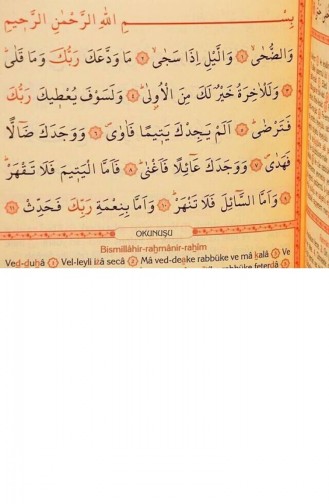 بِسْمِ اللّٰهِ الرَّحْمٰنِ الرَّحِيمِ
وَالضُّحٰىۙ ﴿١﴾ وَالَّيْلِ اِذَا سَجٰىۙ ﴿٢﴾ مَا وَدَّعَكَ رَبُّكَ وَمَا قَلٰىۜ ﴿٣﴾
وَلَلْاٰخِرَةُ خَيْرٌ لَكَ مِنَ الْاُو۫لٰىۜ ﴿٤﴾ وَلَسَوْفَ يُعْط۪يكَ رَبُّكَ
فَتَرْضٰىۜ ﴿٥﴾ اَلَمْ يَجِدْكَ يَت۪يمًا فَاٰوٰىۖ ﴿٦﴾ وَوَجَدَكَ ضَٓالًّا
فَهَدٰىۖ ﴿٧﴾ وَوَجَدَكَ عَٓائِلًا فَاَغْنٰىۜ ﴿٨﴾ فَاَمَّا الْيَت۪يمَ فَلَا تَقْهَرْۜ
﴿٩﴾ وَاَمَّا السَّٓائِلَ فَلَا تَنْهَرْۜ ﴿١٠﴾ وَاَمَّا بِنِعْمَةِ رَبِّكَ فَحَدِّثْ ﴿١١﴾
OKUNUŞU
Bismillâhir-rahmânir-rahîm
Ved-duhâ ① Vel-leyli izâ secâ ② Mâ ved-deake rabbüke ve mâ kalâ ③ Ve
rabbüke feterdâ